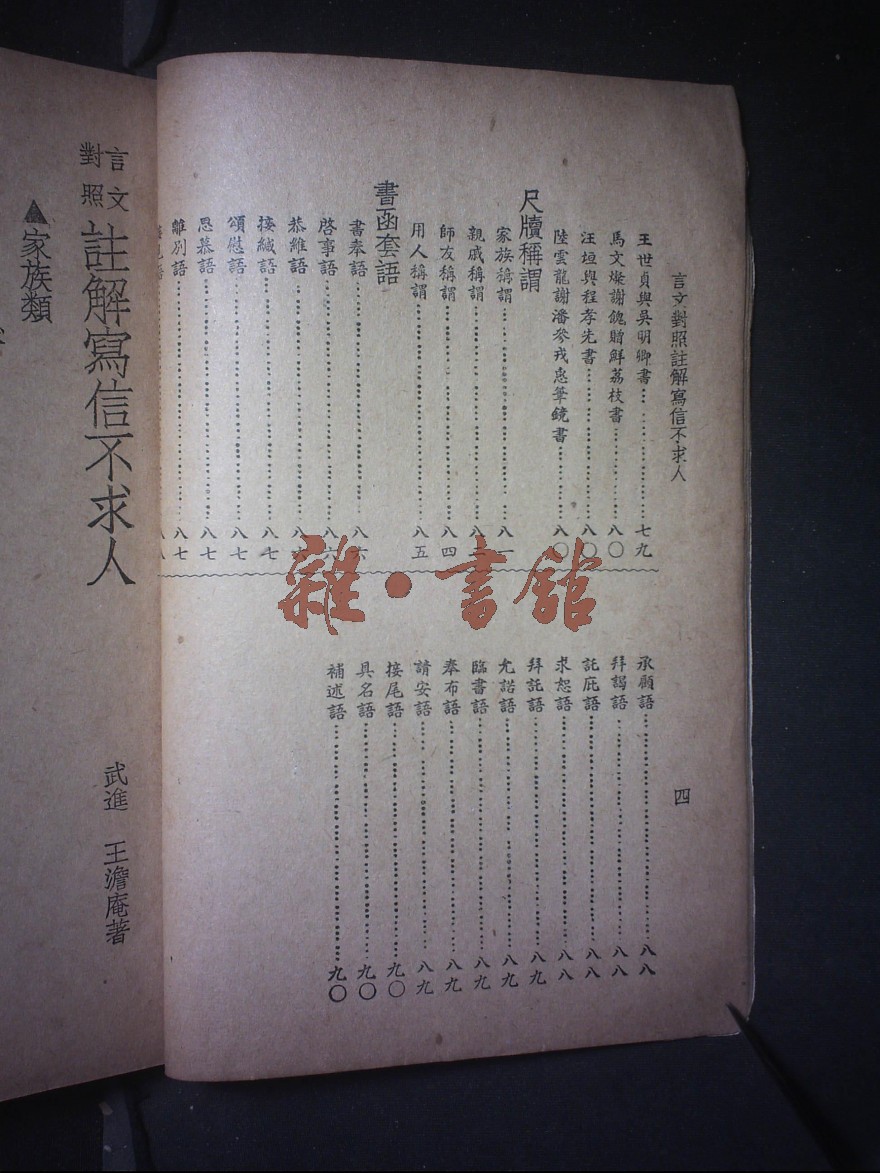 言文對照註解寫信不求人
四
王世貞與吳明卿書……七九
馬文燦謝餽贈鮮荔枝書……八〇
汪垣與程孝先書……八〇
陸雲龍謝潘參戎惠筆鏡書……八〇
尺牘稱謂
家族稱謂……八一
親戚稱謂……八二
師友稱謂……八四
用人稱謂……八五
書函套語
書奉語……八六
啓事語……八六
恭維語……八六
接緘語……八七
頌慰語……八七
思慕語……八七
離別語……八七
承願語……八八
拜謁語……八八
託庇語……八八
求恕語……八八
拜託語……八九
允諾語……八九
臨書語……八九
奉布語……八九
請安語……八九
接尾語……九〇
具名語……九〇
補述語……九〇
雜·書館
言文對照註解寫信不求人
武進 王澹庵著
▲家族類